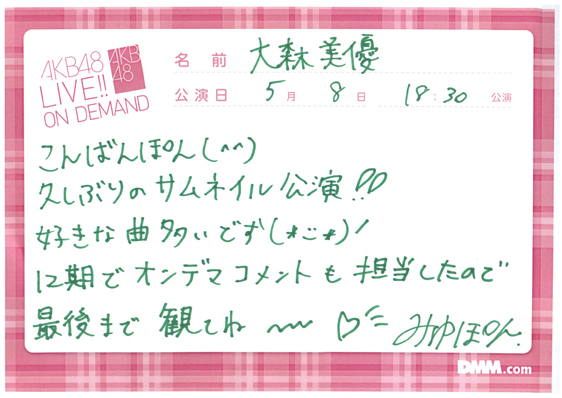 AKB48
LIVE!!
ON DEMAND
AKB
48
名前 大森美優
公演日 5月 8日 18:30 公演
こんばんぽん(^^)
久しぶりのサムネイル公演!!
好きな曲多いです(*ˊᵕˋ*)!
12期でオンデマコメントも担当したので
最後まで観てね 〜〜 ♡ みゆぽん.
DMM.com